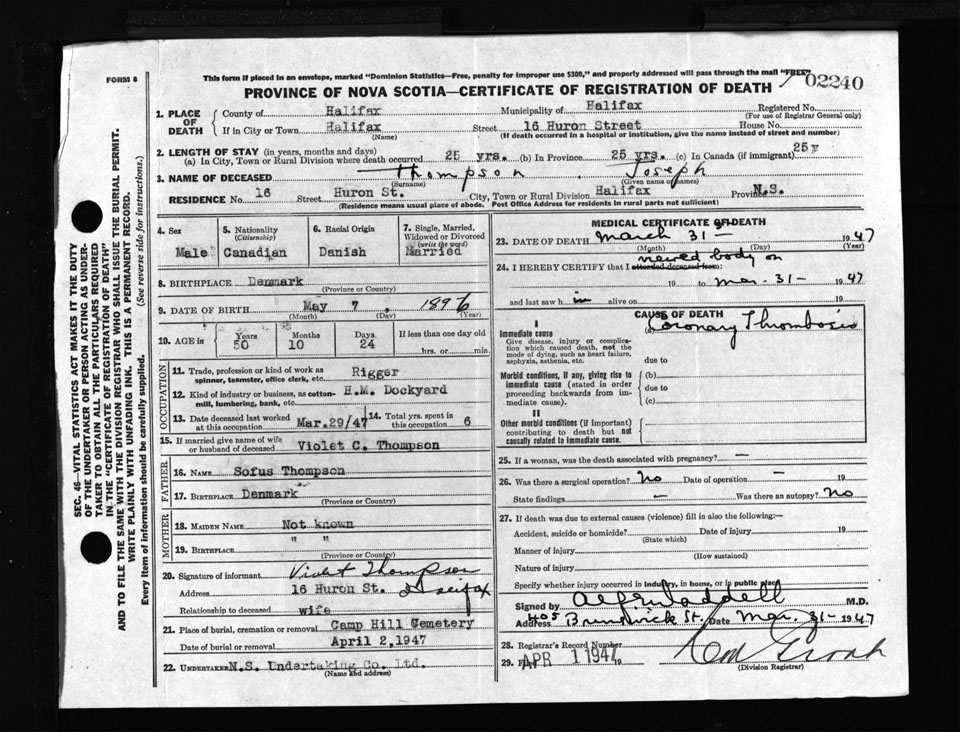 FORM 6
This form if placed in an envelope, marked "Dominion Statistics—Free, penalty for improper use $300," and properly addressed will pass through the mail "FREE"
02240
PROVINCE OF NOVA SCOTIA—CERTIFICATE OF REGISTRATION OF DEATH
1. PLACE OF DEATH
County of Halifax Municipality of Halifax Registered No.
(For use of Registrar General only)
If in City or Town Halifax Street 16 Huron Street House No.
(Name) (If death occurred in a hospital or institution, give the name instead of street and number)
2. LENGTH OF STAY (in years, months and days)
(a) In City, Town or Rural Division where death occurred 25 yrs. (b) In Province 25 yrs. (c) In Canada (if immigrant) 25y
3. NAME OF DECEASED Thompson Joseph
(Surname) (Given name or names)
RESIDENCE No. 16 Street Huron St. City, Town or Rural Division Halifax Province N.S.
(Residence means usual place of abode. Post Office Address for residents in rural parts not sufficient)
4. Sex
Male
5. Nationality
(Citizenship)
Canadian
6. Racial Origin
Danish
7. Single, Married, Widowed or Divorced
(write the word)
Married
8. BIRTHPLACE Denmark
(Province or Country)
9. DATE OF BIRTH May 7, 1896
(Month) (Day) (Year)
10. AGE in Years Months Days If less than one day old
50 10 24 hrs. or min.
OCCUPATION
11. Trade, profession or kind of work as spinner, teamster, office clerk, etc. Rigger
12. Kind of industry or business, as cotton-mill, lumbering, bank, etc. H.M. Dockyard
13. Date deceased last worked at this occupation Mar.29/47
14. Total yrs. spent in this occupation 6
15. If married give name of wife or husband of deceased Violet C. Thompson
FATHER
16. NAME Sofus Thompson
17. BIRTHPLACE Denmark
(Province or Country)
MOTHER
18. MAIDEN NAME Not known
19. BIRTHPLACE " "
(Province or Country)
20. Signature of informant Violet Thompson
Address 16 Huron St. Halifax
Relationship to deceased wife
21. Place of burial, cremation or removal Camp Hill Cemetery
Date of burial or removal April 2,1947
22. UNDERTAKER N.S. Undertaking Co. Ltd.
(Name and address)
MEDICAL CERTIFICATE OF DEATH
23. DATE OF DEATH March 31— 1947
(Month) (Day) (Year)
24. I HEREBY CERTIFY that I attended deceased from: viewed body on
19 to Mar. 31— 1947
and last saw h im alive on 19
CAUSE OF DEATH
I
Immediate cause
Give disease, injury or complication which caused death, not the mode of dying, such as heart failure, asphyxia, asthenia, etc.
(a) Coronary Thrombosis
due to
Morbid conditions, if any, giving rise to immediate cause (stated in order proceeding backwards from immediate cause).
(b)
due to
(c)
II
Other morbid conditions (if important) contributing to death but not causally related to immediate cause.
25. If a woman, was the death associated with pregnancy? —
26. Was there a surgical operation? No Date of operation — 19
State findings — Was there an autopsy? No
27. If death was due to external causes (violence) fill in also the following:—
Accident, suicide or homicide? Date of injury 19
(State which)
Manner of injury
(How sustained)
Nature of injury
Specify whether injury occurred in industry, in home, or in public place
Signed by Alf Waddell M.D.
Address 405 Brunswick St. Date Mar. 31— 1947
28. Registrar's Record Number
29. Filed APR 1 1947 19
(Division Registrar)
SEC. 46—VITAL STATISTICS ACT MAKES IT THE DUTY
OF THE UNDERTAKER OR PERSON ACTING AS UNDER-
TAKER TO OBTAIN ALL THE PARTICULARS REQUIRED
IN THE "CERTIFICATE OF REGISTRATION OF DEATH"
AND TO FILE THE SAME WITH THE DIVISION REGISTRAR WHO SHALL ISSUE THE BURIAL PERMIT.
WRITE PLAINLY WITH UNFADING INK. THIS IS A PERMANENT RECORD.
Every item of information should be carefully supplied. (See reverse side for instructions.)